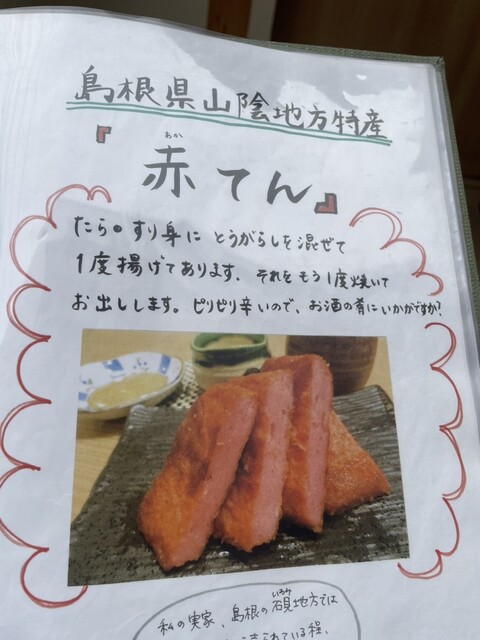 島根県山陰地方特産
『赤てん』
あか
たらのすり身に とうがらしを混ぜて
1度揚げてあります。それをもう1度焼いて
お出しします。ピリピリ辛いので、お酒の肴にいかがですか?
いわみ
私の実家、島根の碩地方では
売られている程、